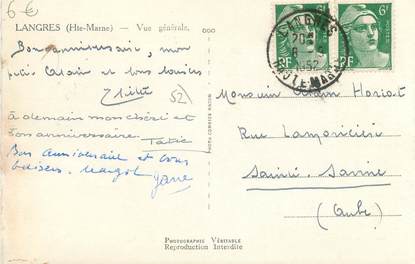 6 €
LANGRES (Hte-Marne) — Vue générale.
Bon anniversaire, mon
petit Alain et tous
52
à demain mon chéri et
bon anniversaire.
Tatie
Bon anniversaire et tous
baisers. Margot
PHOTOGRAPHIE VÉRITABLE
Reproduction Interdite
LANGRES
20
1952
HAUTE-MARNE
6F
RF
6F
RF
Monsieur Alain Horiot
Rue Lamoricière
Sainte Savine
(Aube)